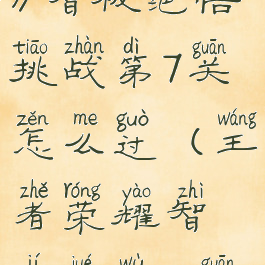 tiāo zhàn dì guān
挑战第7关
zěn me guò wáng
怎么过（王
zhě róng yào zhì
者荣耀智